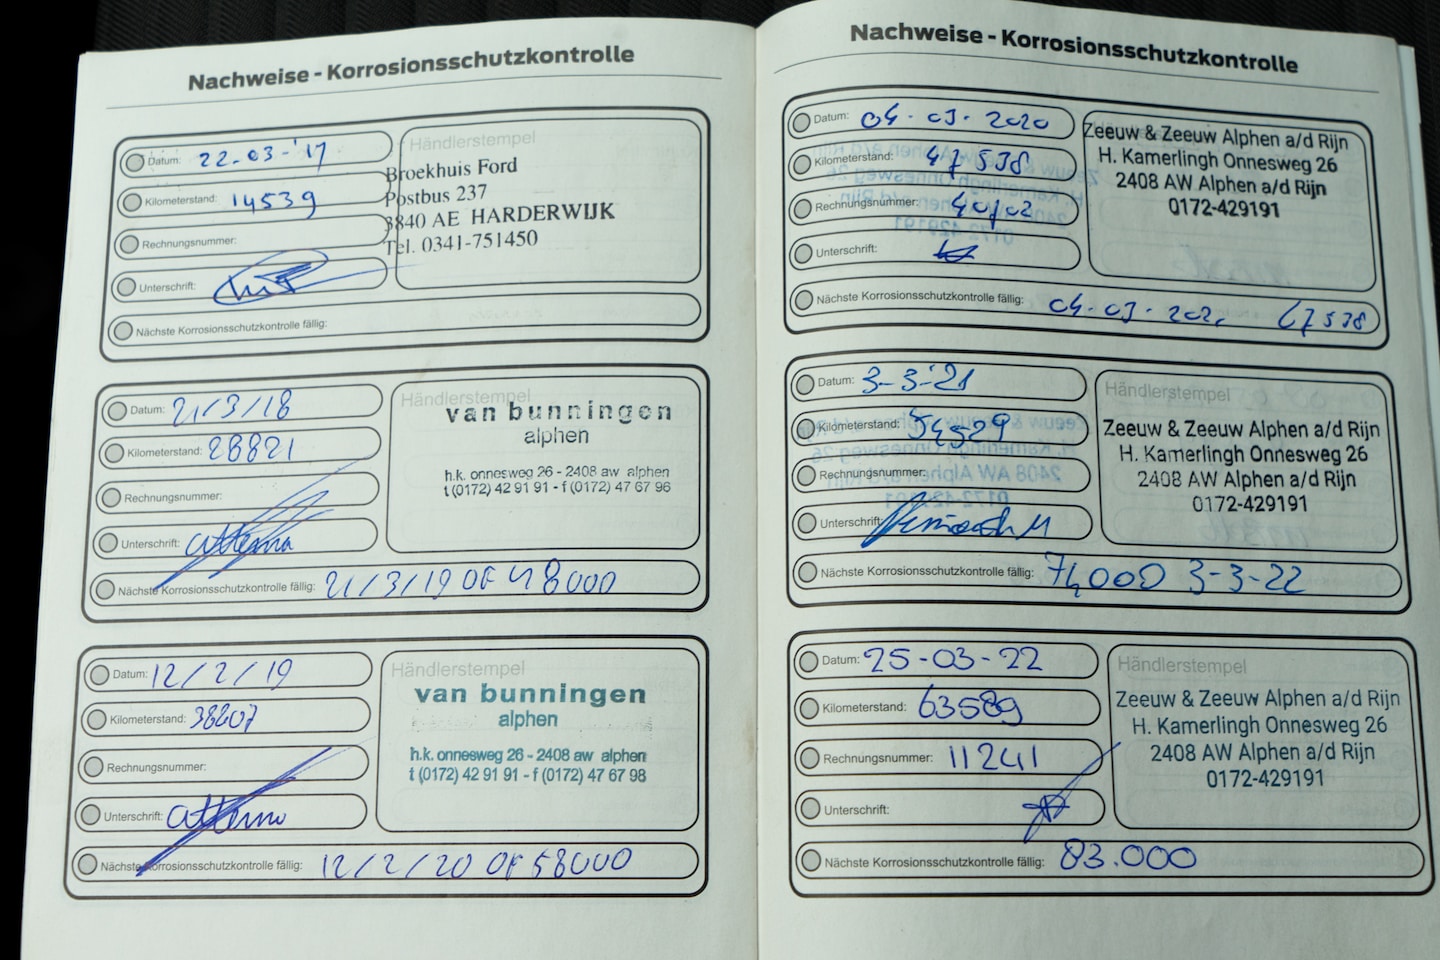 Nachweise - Korrosionsschutzkontrolle
Datum: 22-03-'17
Kilometerstand: 14539
Rechnungsnummer:
Unterschrift:
Nächste Korrosionsschutzkontrolle fällig:
Händlerstempel
Broekhuis Ford
Postbus 237
3840 AE HARDERWIJK
Tel. 0341-751450
Datum: 21/3/18
Kilometerstand: 28821
Rechnungsnummer:
Unterschrift:
Nächste Korrosionsschutzkontrolle fällig: 21/3/19 OF 48000
Händlerstempel
van bunningen
alphen
h.k. onnesweg 26 - 2408 aw alphen
t (0172) 42 91 91 - f (0172) 47 67 98
Datum: 12/2/19
Kilometerstand: 38207
Rechnungsnummer:
Unterschrift:
Nächste Korrosionsschutzkontrolle fällig: 12/2/20 OF 58000
Händlerstempel
van bunningen
alphen
h.k. onnesweg 26 - 2408 aw alphen
t (0172) 42 91 91 - f (0172) 47 67 98
Nachweise - Korrosionsschutzkontrolle
Datum: 04-03-2020
Kilometerstand: 47538
Rechnungsnummer:
Unterschrift:
Nächste Korrosionsschutzkontrolle fällig: 04-03-2021 67538
Zeeuw & Zeeuw Alphen a/d Rijn
H. Kamerlingh Onnesweg 26
2408 AW Alphen a/d Rijn
0172-429191
Datum: 3-3-'21
Kilometerstand: 54529
Rechnungsnummer:
Unterschrift:
Nächste Korrosionsschutzkontrolle fällig: 74000 3-3-22
Händlerstempel
Zeeuw & Zeeuw Alphen a/d Rijn
H. Kamerlingh Onnesweg 26
2408 AW Alphen a/d Rijn
0172-429191
Datum: 25-03-22
Kilometerstand: 63589
Rechnungsnummer: 11241
Unterschrift:
Nächste Korrosionsschutzkontrolle fällig: 83.000
Händlerstempel
Zeeuw & Zeeuw Alphen a/d Rijn
H. Kamerlingh Onnesweg 26
2408 AW Alphen a/d Rijn
0172-429191